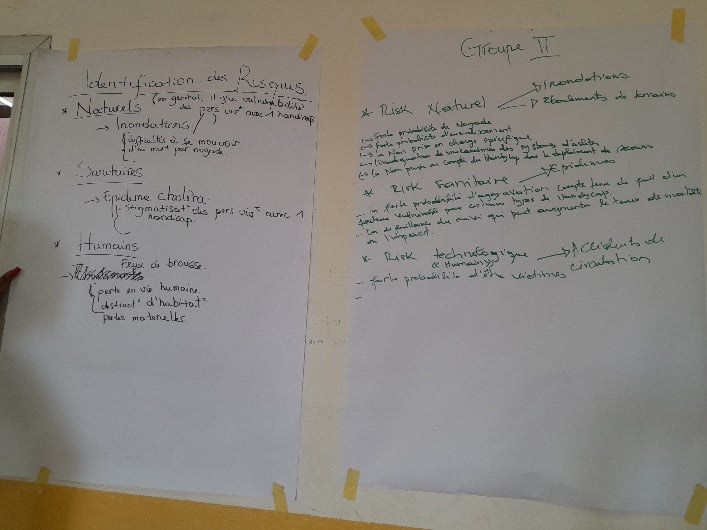 Identification des Risques
* Naturels (en général, il y a vulnérabilité
des pers viv^t avec 1 handicap
→ Inondations
difficultés à se mouvoir
noyade.
* Sanitaires
→ Epidemie choléra
- stigmatisat° des pers viv^t avec 1
handicap.
* Humains
Feux de brousse.
perte en vie humaine.
destruct° d'habitat°
pertes materielles.
Groupe II
* Risk Naturel → inondations
→ Eboulements de terrains
→ forte probabilité de Noyade
→ forte probabilité d'ensevelissement
→ la Non prise en charge spécifique
→ l'inadéquation de mécanismes des systèmes d'alertes
→ la Non prise en compte du Handicap dans le déploiement de secours
* Risk Sanitaire → Epidémies
- la forte probabilité d'aggravation compte tenu du fait d'un
facteur vulnérable pour certains types de Handicap.
qui peut augmenter le taux de
ou l'impact.
* Risk technologique → Accidents de
« Humain » circulation
- forte probabilité d'être victimes
-